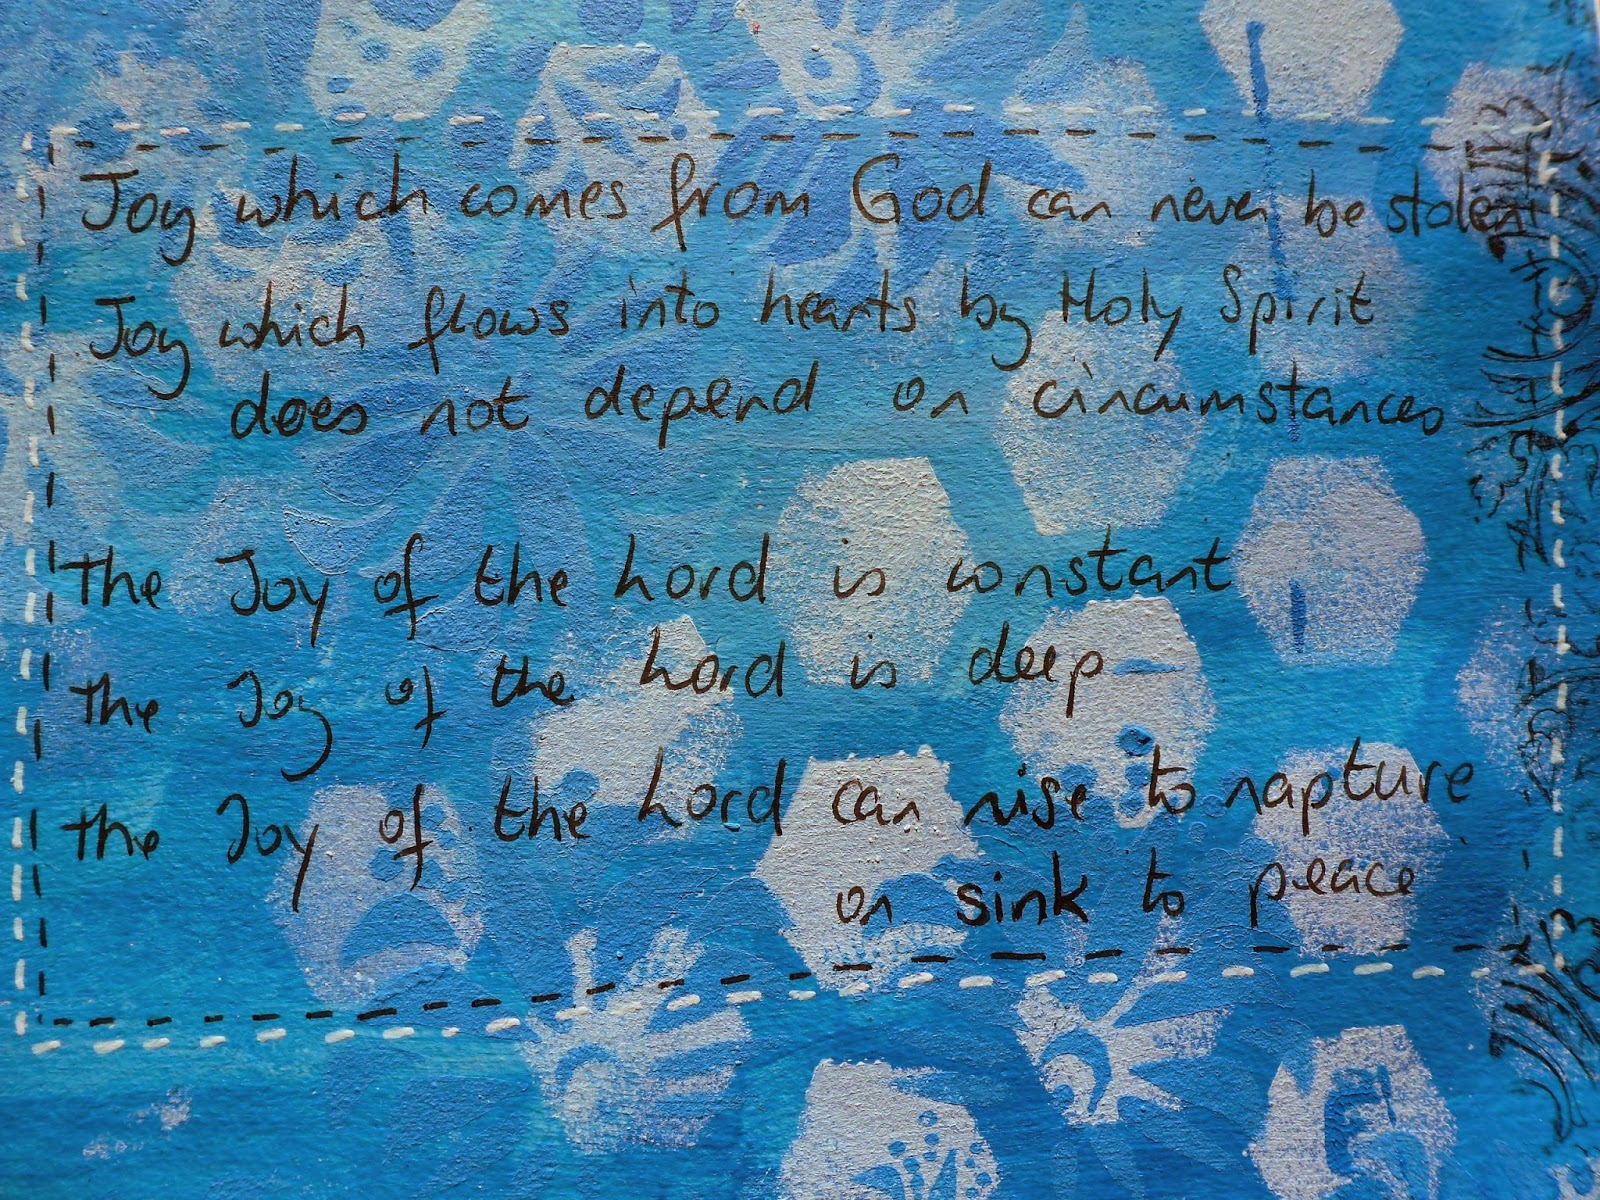 Joy which comes from God can never be stolen
Joy which flows into hearts by Holy Spirit
does not depend on circumstances
The Joy of the Lord is constant
The Joy of the Lord is deep
The Joy of the Lord can rise to rapture
or sink to peace